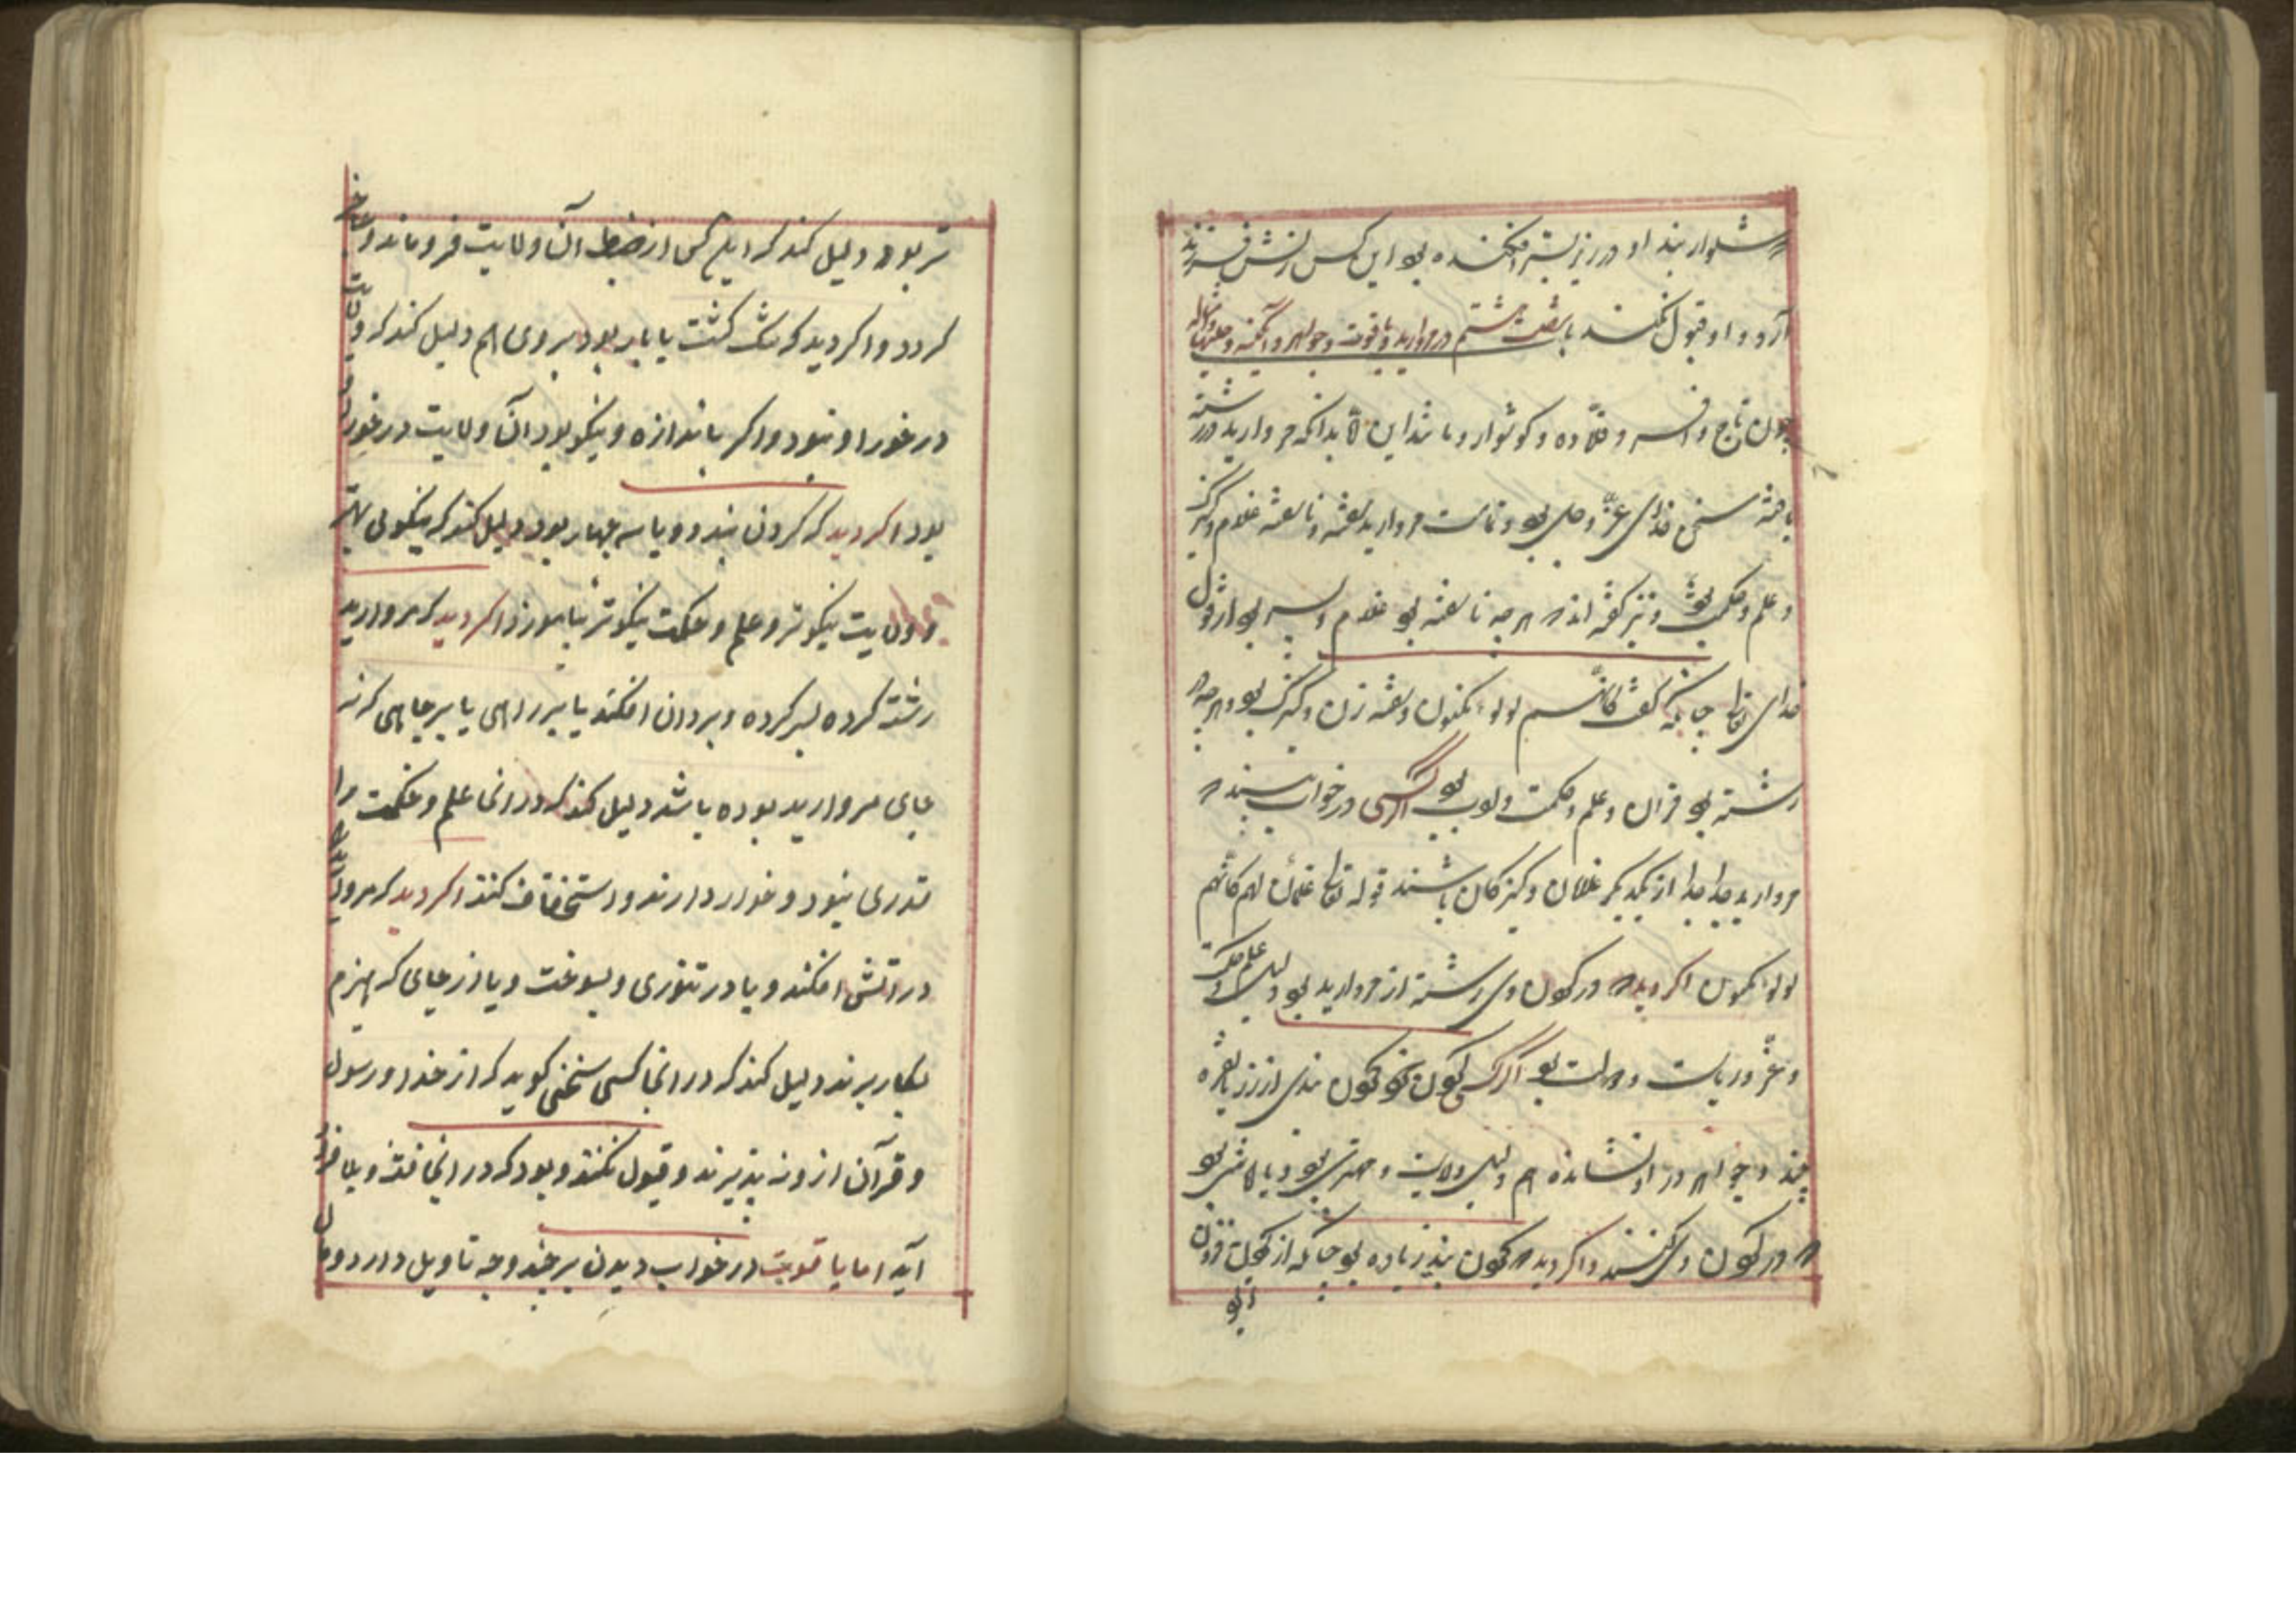 شلوار بند او در زیر بستر افکنده بود این کس را زنش فرزند
آرد و او قبول نکند باب شصت و هشتم در مروارید و یاقوت و جواهر و آبگینه
چون تاج و افسر و قلاده و گوشوار و مانند این بدانکه مروارید در رشته
یافته سخن خدای عزّ و جل بود و مروارید سفته و ناسفته غلام و کنیزک
و علم و حکمت بود و نیز گفته اند که هرچه ناسفته بود غلام و پسر بود از قول
خدای تعالی چنانکه گفت کانّهم لولو مکنون و سفته زن و کنیزک بود و هرچه
رشته بود قران و علم و حکمت و ادب بود اگر کسی در خواب بیند که
مروارید جدا جدا از یکدیگر غلامان و کنیزکان باشند قوله تعالی غلمان لهم کانهم
لولو مکنون اگر دید که در گردن وی رشته از مروارید بود دلیل علم و حکمت
و عزّ و ریاست و بود اگر کسی در گردن خود چون بندی از زر یا نقره
بیند و جواهر در او نشانده هم دلیل ولایت و مهتری بود و یا بود
که در گردن وی کنند و اگر دید که گردن بند زیاده بود چنانکه از گردن
تر بود دلیل کند که این کس از ضبط آن ولایت فرو ماند و عاجز
گردد و اگر دید که تنگ گشت یا بار بود بروی هم دلیل کند که ولایت
در خور او نبود و اگر باندازه و نیکو بود آن ولایت در خور او
بود اگر دید که گردن بند دو یا سه چهار بود دلیل کند که نیکوئی بهتر
و ولایت نیکوتر و علم و حکمت نیکوتر بیاموزد اگر دید که مروارید
رشته کرده و بیرون افکند یا بر راهی یا بر جاهی که نه
جای مروارید بوده باشد دلیل کند که در انجا علم و حکمت مرا
قدری نبود و خوار دارند و استخفاف کنند اگر دید که مروارید
در اتش افکند و یا در تنوری و بسوخت و یا از جای که هیزم
بکار برند دلیل کند که در انجا کسی سخنی گوید که از خدا و رسول
و قرآن از و نه پذیرند و قبول نکنند و بود که در انجا فتنه و بلا فرود
آید اما یاقوت در خواب دیدن بر چند وجه تاویل دارد